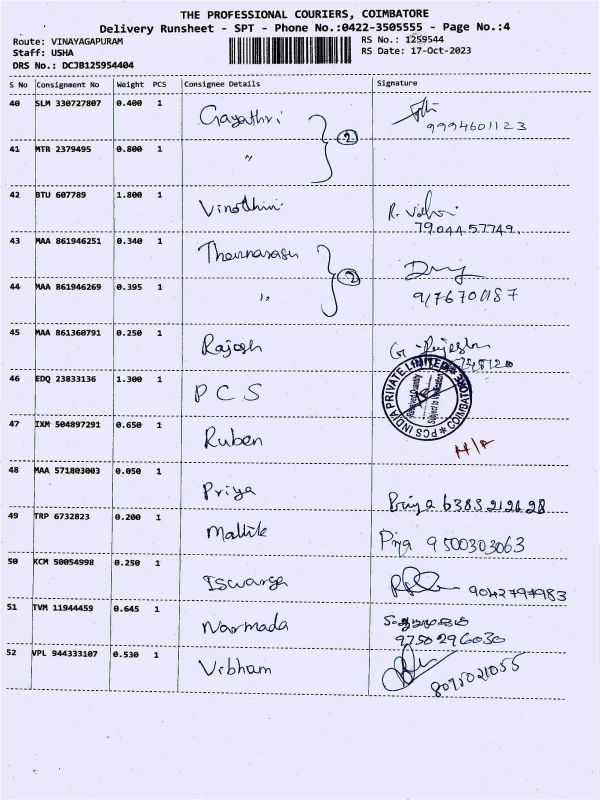 THE PROFESSIONAL COURIERS, COIMBATORE
Delivery Runsheet - SPT - Phone No.:0422-3505555 - Page No.:4
Route: VINAYAGAPURAM
RS No.: 1259544
Staff: USHA
RS Date: 17-Oct-2023
DRS No.: DCJB125954404
S No Consignment No Weight PCS Consignee Details Signature
40 SLM 330727807 0.400 1 Gayathri 2
9994601123
41 MTR 2379495 0.800 1 〃
42 BTU 607789 1.800 1 Vinothini
7904457749
43 MAA 861946251 0.340 1 2
44 MAA 861946269 0.395 1 〃
45 MAA 861360791 0.250 1 Rajesh
46 EDQ 23833136 1.300 1 PCS
PCS INDIA PRIVATE LIMITED COIMBATORE
47 IXM 504897291 0.650 1 Ruben
48 MAA 571803003 0.050 1 Priya
Priya 6385212628
49 TRP 6732823 0.200 1
Priya 9500303063
50 KCM 50054998 0.250 1 Iswarya
9042797983
51 TVM 11944459 0.645 1 Narmada
9750296030
52 VPL 944333107 0.530 1 Vibham
8075021055